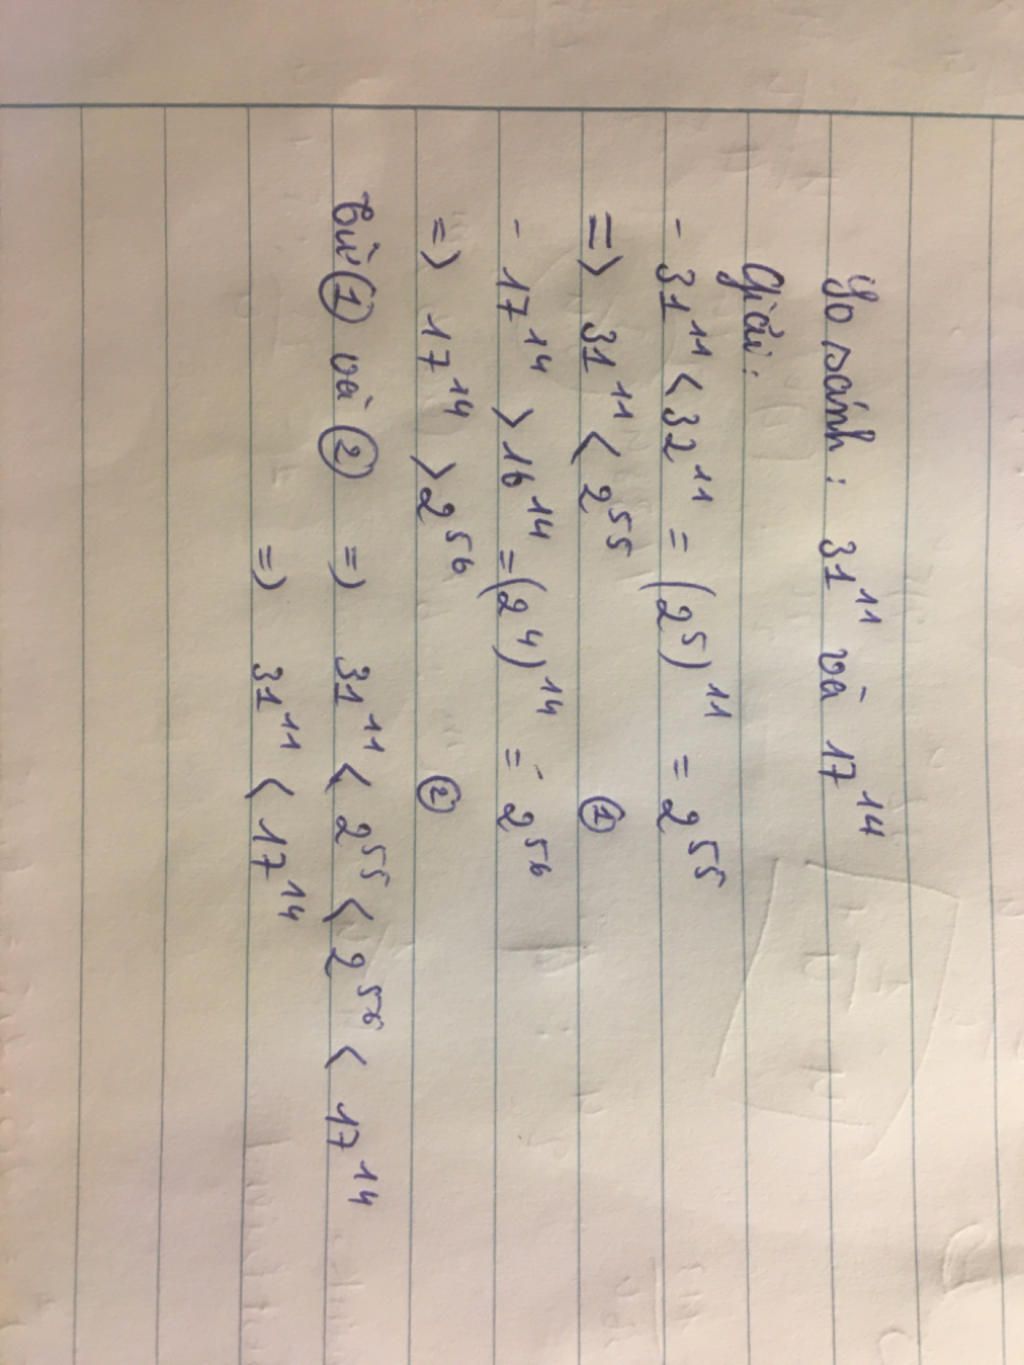 So sánh : 31¹¹ và 17¹⁴
Giải :
- 31¹¹ < 32¹¹ = (2⁵)¹¹ = 2⁵⁵
=> 31¹¹ < 2⁵⁵ ①
- 17¹⁴ > 16¹⁴ = (2⁴)¹⁴ = 2⁵⁶
=> 17¹⁴ > 2⁵⁶ ②
từ ① và ② => 31¹¹ < 2⁵⁵ < 2⁵⁶ < 17¹⁴
=> 31¹¹ < 17¹⁴